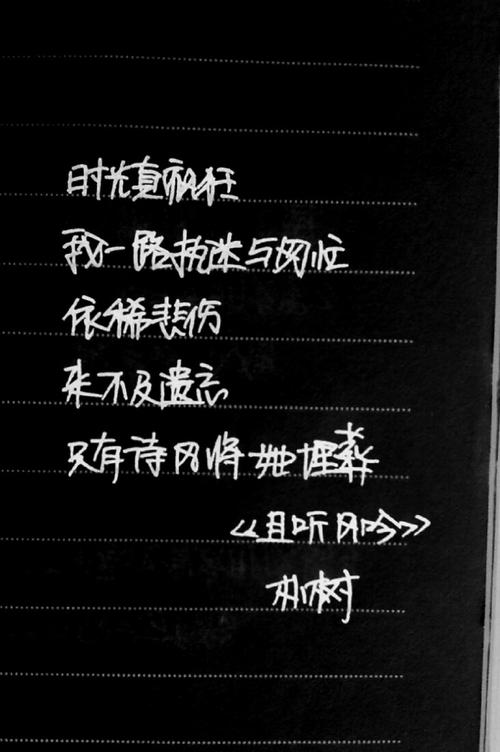 时光真疯狂
我一路执迷与匆忙
依稀悲伤
来不及遗忘
只有待风将她埋葬
《且听风吟》
朴树